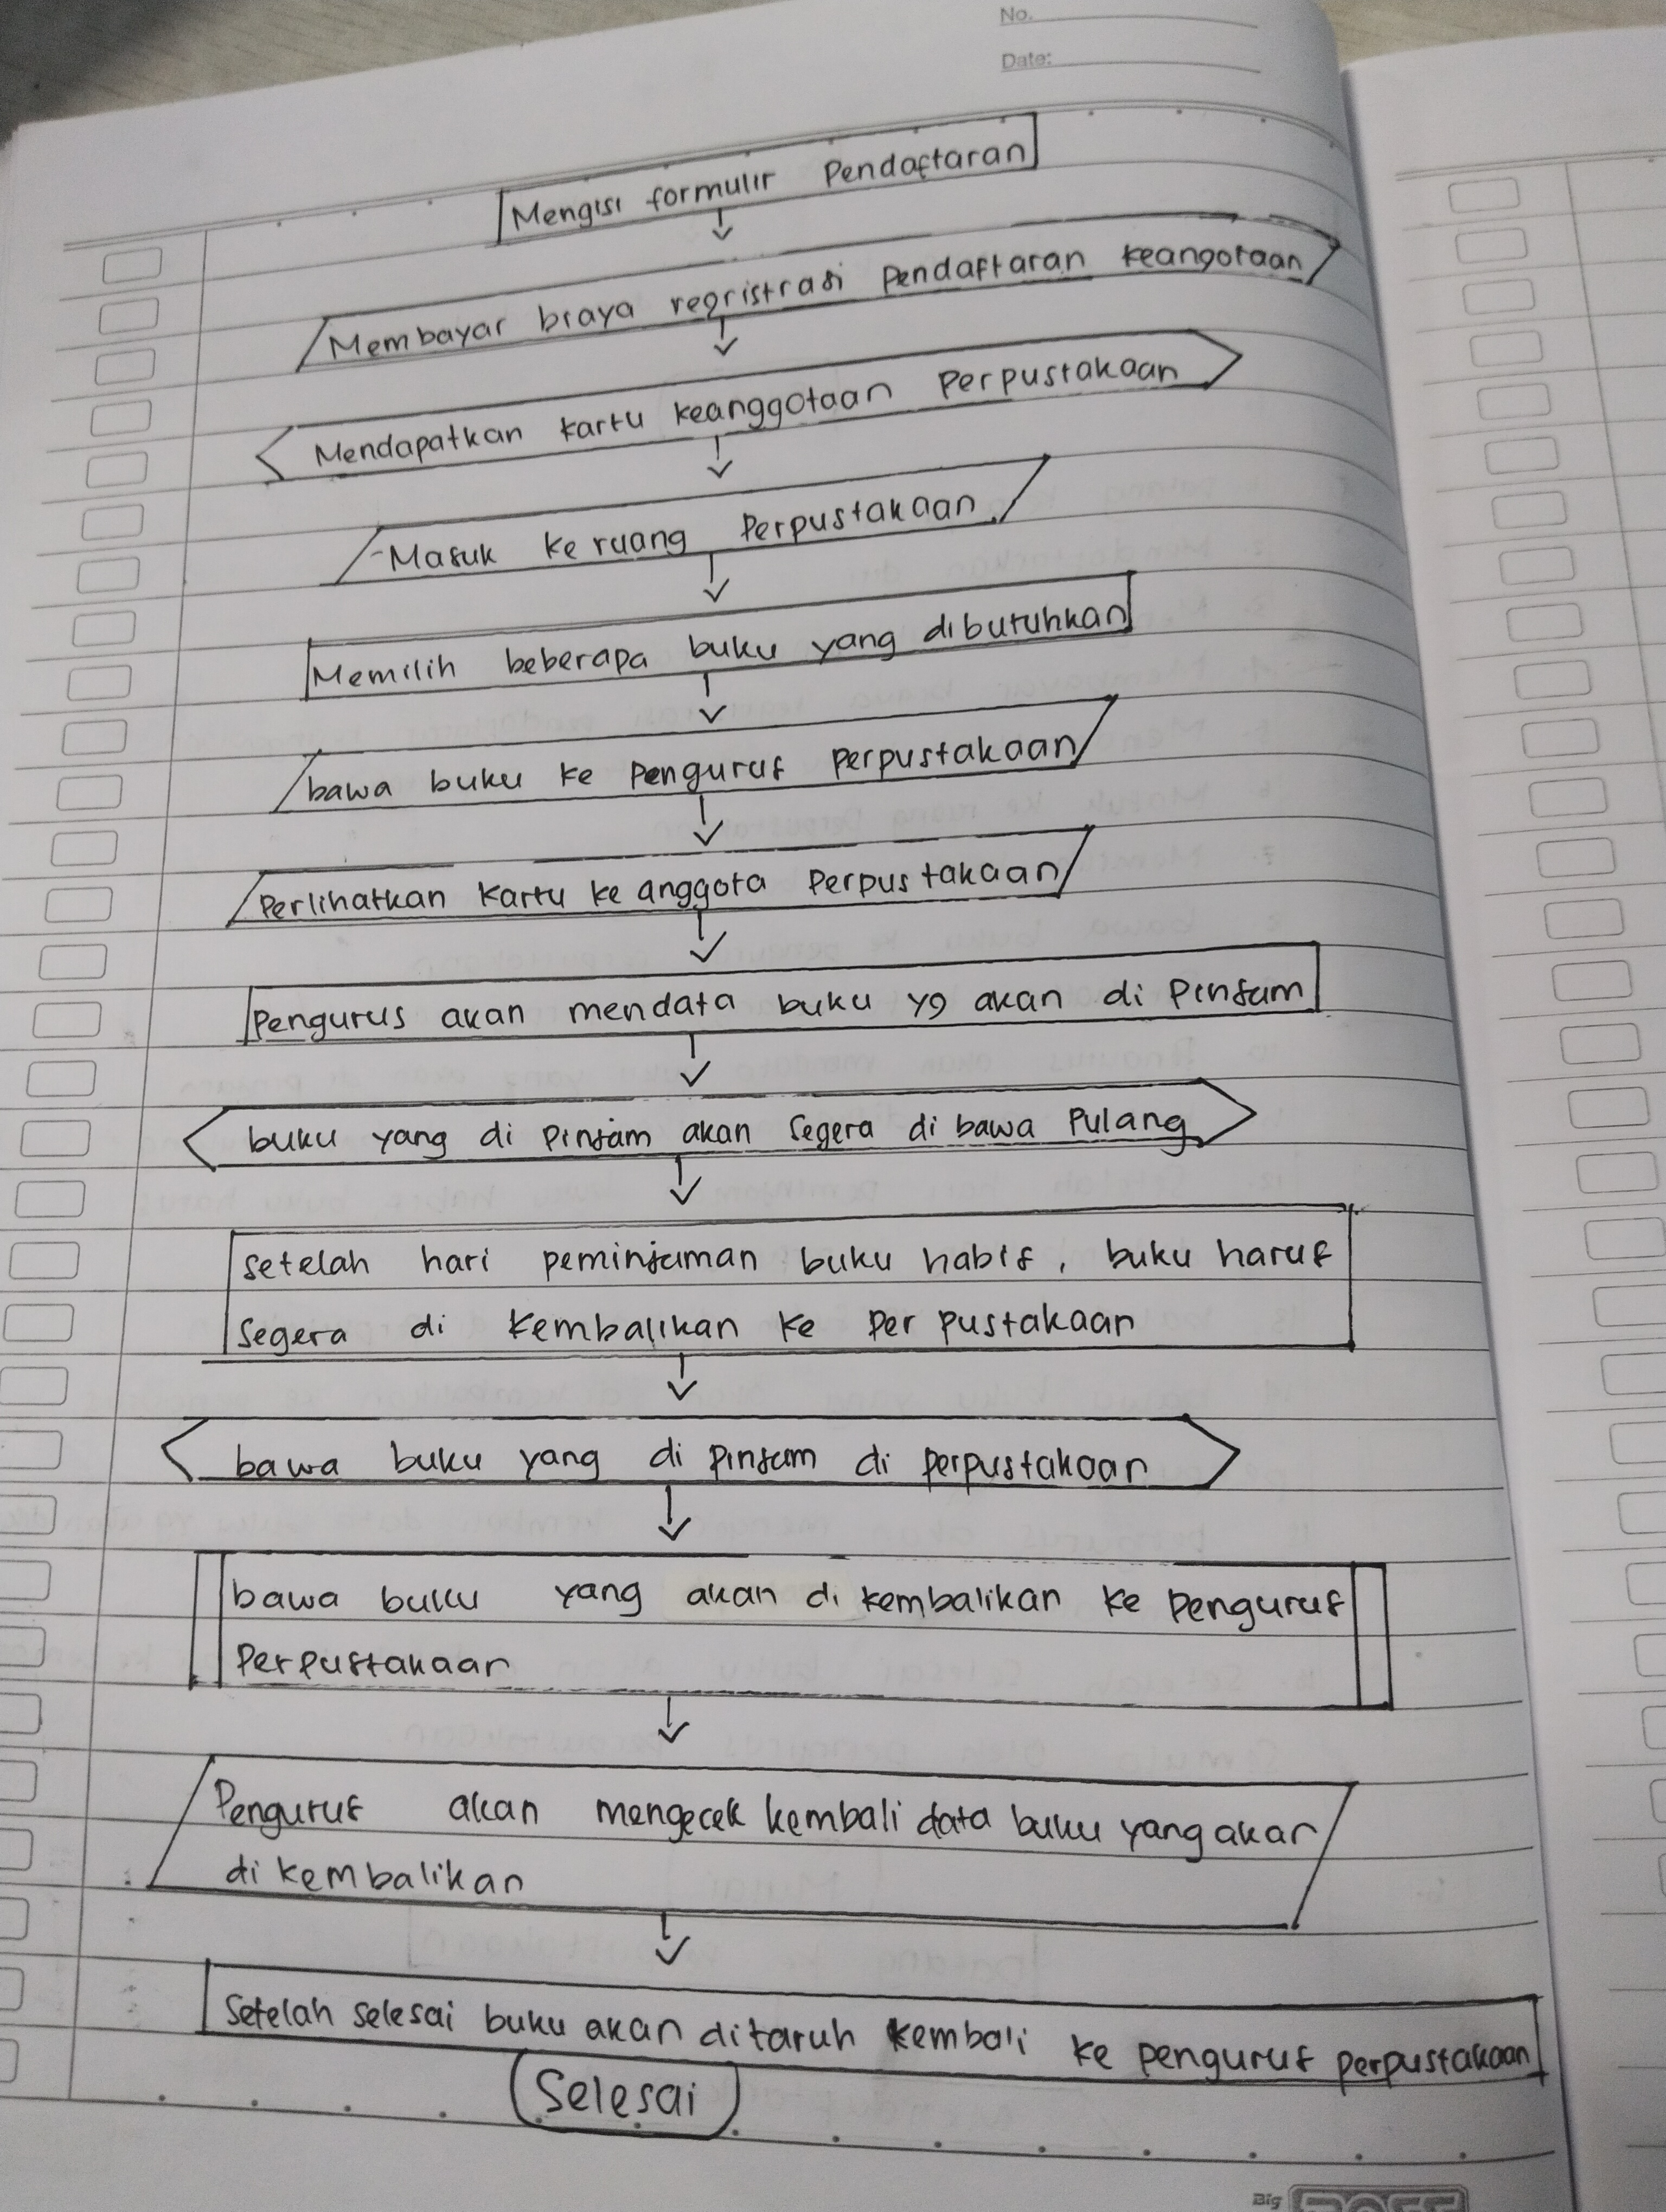 No.
Date:
Mengisi formulir Pendaftaran
Membayar biaya regristrasi Pendaftaran keangotaan
Mendapatkan kartu keanggotaan Perpustakaan
Masuk ke ruang Perpustakaan
Memilih beberapa buku yang dibutuhkan
bawa buku ke Pengurus Perpustakaan
Perlihatkan kartu ke anggota Perpustakaan
Pengurus akan mendata buku yg akan di Pinjam
buku yang di Pinjam akan Segera di bawa Pulang
setelah hari peminjaman buku habis, buku harus
segera di kembalikan ke Perpustakaan
bawa buku yang di Pinjam di perpustakaan
bawa buku yang akan di kembalikan ke Pengurus
Perpustakaan
Pengurus akan mengecek kembali data buku yang akan
di kembalikan
Setelah selesai buku akan ditaruh kembali ke pengurus perpustakaan
Selesai
Big
BOSS